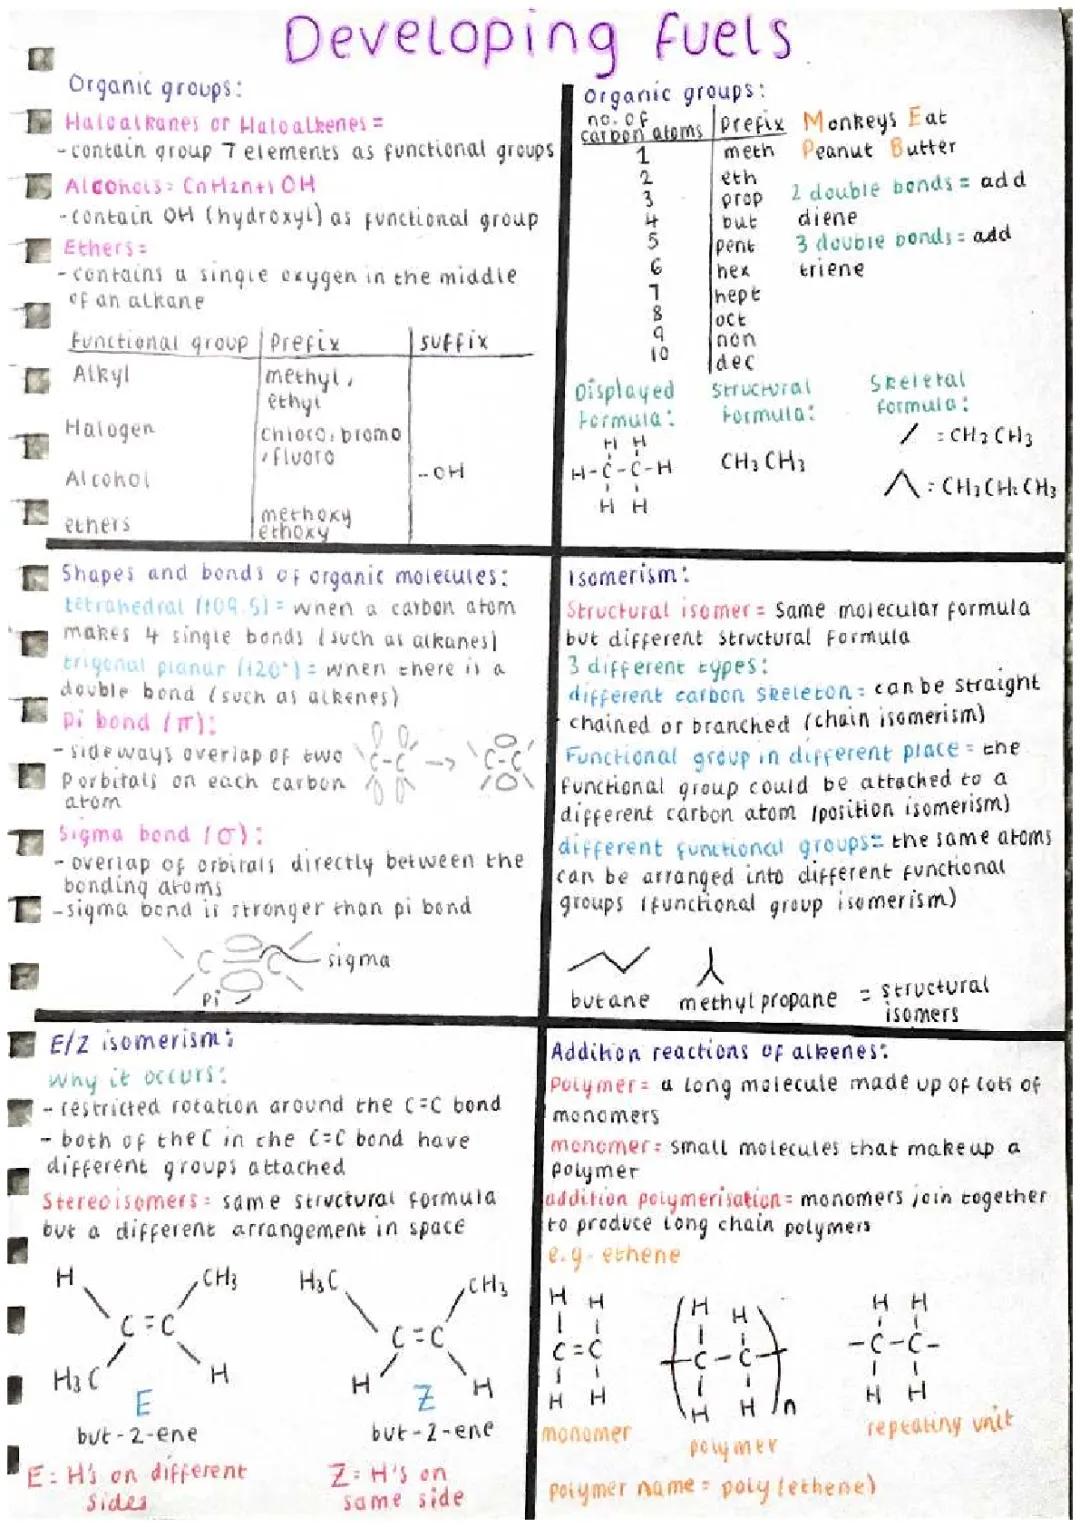 Developing fuels
Organic groups:
Haloalkanes or Haloalkenes =
- contain group 7 elements as functional groups
Alcohols = CnH2n+1 OH
- contain OH (hydroxyl) as functional group
Ethers =
- contains a single oxygen in the middle
of an alkane
functional group | Prefix | suffix
Alkyl | methyl,
ethyl
Halogen | Chloro, bromo
, fluoro
Alcohol | -OH
ethers | methoxy
ethoxy
Organic groups:
no. of
carbon atoms | prefix
1 meth
2 eth
3 prop
4 but
5 pent
6 hex
7 hept
8 oct
9 non
10 dec
Monkeys Eat
Peanut Butter
2 double bonds = add
diene
3 double bonds = add
triene
Displayed
formula:
H H
H-C-C-H
H H
Structural
formula:
CH3 CH3
Skeletal
formula:
= CH3 CH3
= CH3 CH2 CH3
Shapes and bonds of organic molecules:
tetrahedral (109.5) = when a carbon atom
makes 4 single bonds (such as alkanes)
trigonal planar (120°) = when there is a
double bond (such as alkenes)
Pi bond (π):
- sideways overlap of two
P orbitals on each carbon
atom
C-C → C-C
Sigma bond (σ):
- overlap of orbitals directly between the
bonding atoms
- sigma bond is stronger than pi bond
C C
sigma
pi
Isomerism:
Structural isomer = Same molecular formula
but different structural formula
3 different types:
different carbon skeleton = can be straight
chained or branched (chain isomerism)
Functional group in different place = the
functional group could be attached to a
different carbon atom (position isomerism)
different functional groups = the same atoms
can be arranged into different functional
groups (functional group isomerism)
butane methyl propane = structural
isomers
E/Z isomerism:
Why it occurs:
- restricted rotation around the C=C bond
- both of the C in the C=C bond have
different groups attached
Stereoisomers = same structural formula
but a different arrangement in space
H CH3
C=C
H3C H
E
but-2-ene
E = H's on different
sides
H3C CH3
C=C
H H
Z
but-2-ene
Z = H's on
same side
Addition reactions of alkenes:
Polymer = a long molecule made up of lots of
monomers
monomer = small molecules that make up a
polymer
addition polymerisation = monomers join together
to produce long chain polymers
e.g. ethene
H H
C=C
H H
monomer
H H
C-C
H H n
polymer
H H
-C-C-
H H
repeating unit
polymer name = poly (ethene)